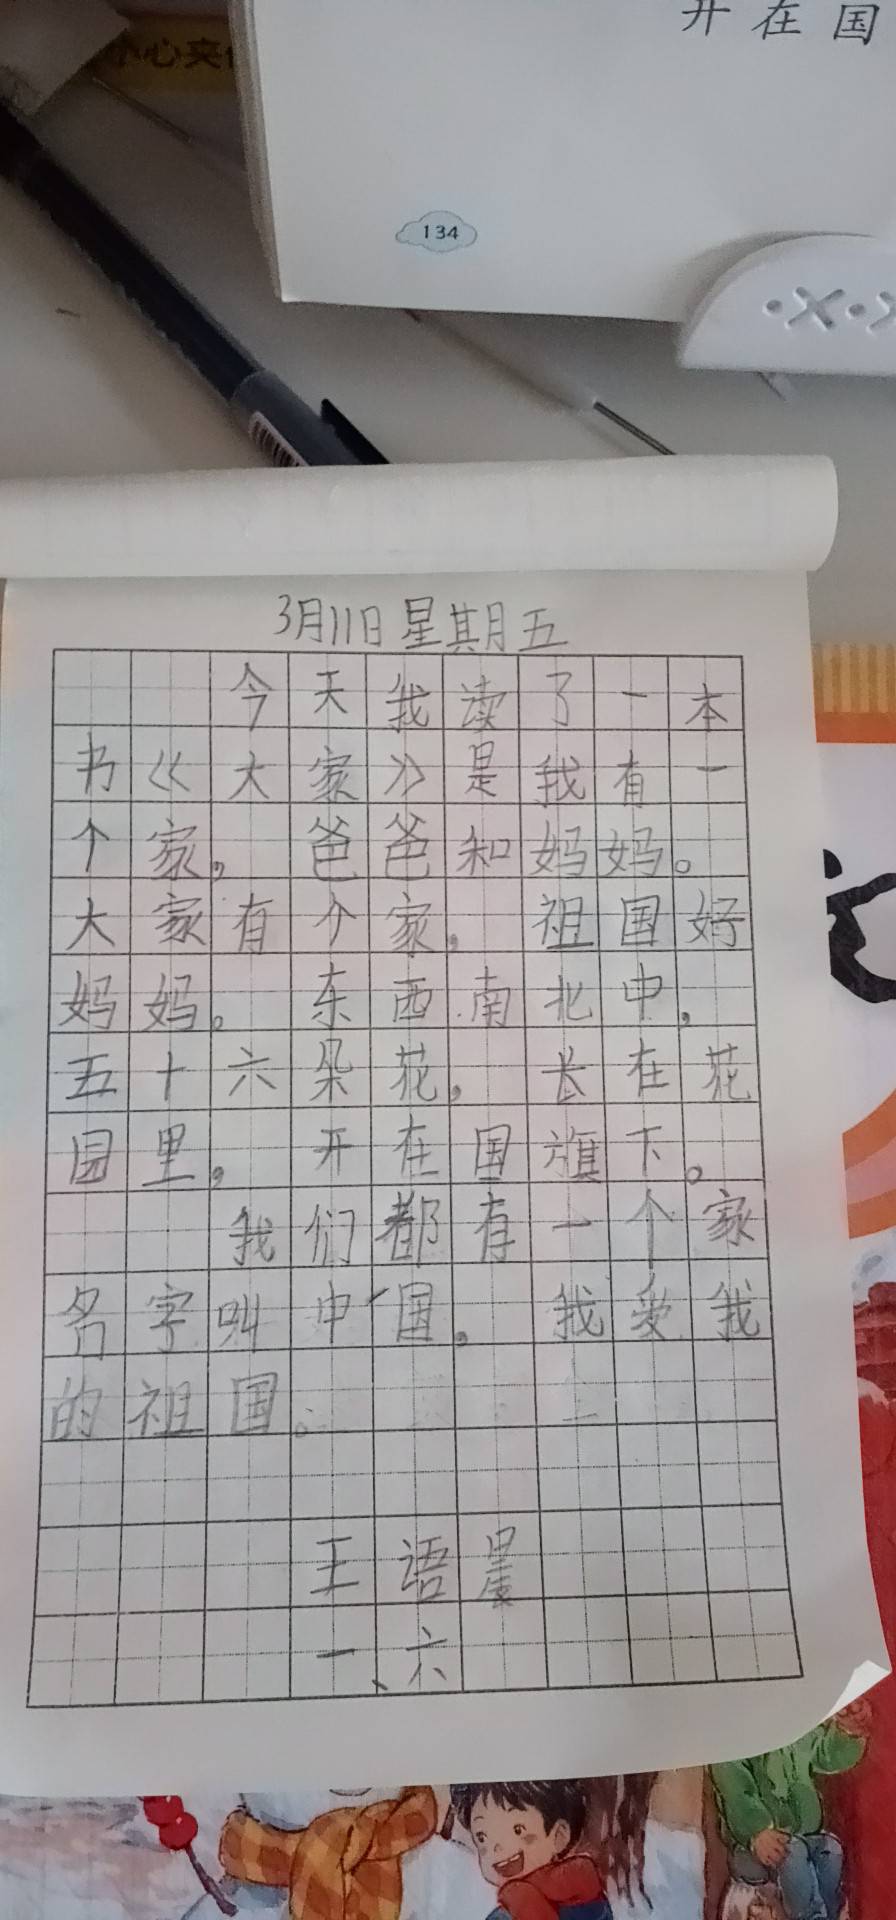 小心夹
开在国
134
3月11日星期五
今天我读了一本
书《大家》是我有一
个家,爸爸和妈妈。
大家有个家,祖国好
妈妈。东西南北中,
五十六朵花,长在花
园里,开在国旗下。
我们都有一个家
名字叫中国,我爱我
的祖国。
王语晨
一、六